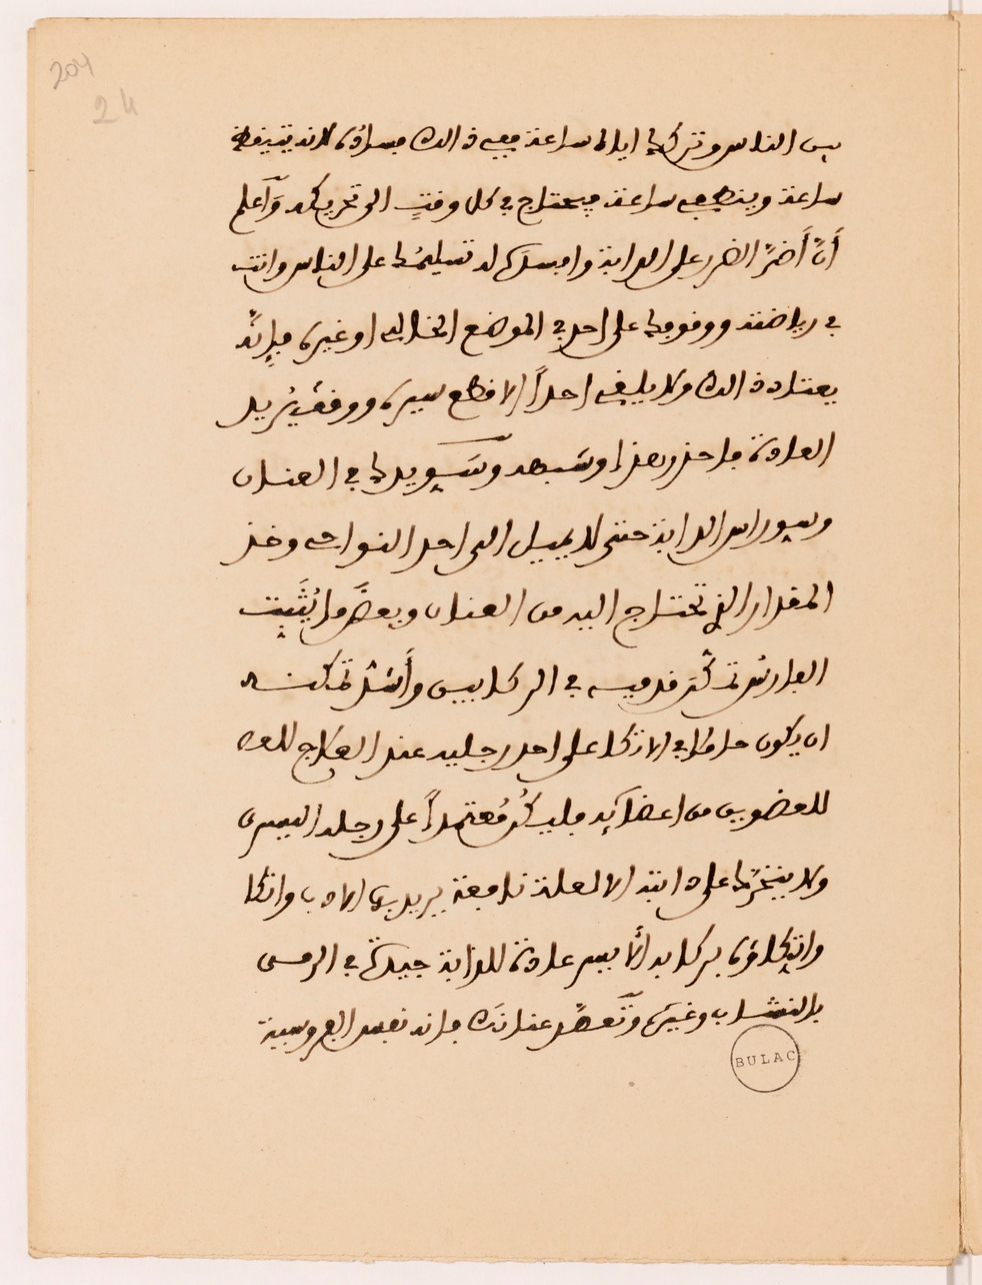 204
24
بين الناس وتركها ايالها ساعة ففي ذالك فساده لانه يتيقظ
ساعة وينطفي ساعة فيحتاج في كل وقتٍ الى تحريكه وَاعلم
أنّ أَضرّ الضرر على الدابة وافسدَه له تسليمُها على الناس وانت
في رياضته ووقوفها على احد في الموضع الخالي او غيره فإنّه
يعتاد ذالك ولا يلقى احداً الا قطع سيره ووقف يُريد
العادة فاحذر هذا وشبهه وتسويدها في العنان
وسو راس الدابة حتى لا يميل الى احد النواحي وخذ
المقدار الذي تحتاج اليه من العنان وبعض ما يُثَبِت
الفارسُ تمكّن قدميه في الركابين وأَشدّ تمكنه
ان يكون حافظا في الاتكا على احد رجليه عند العلاج للعد
للعضوين من اعضايه فليكُن مُعتمداً على رجله اليسرى
ولا ينخزها على دابته الا لعلة نافعة يريد بها الادب واتكا
واتكاؤه بركابه انّما يسر عادة للدابة جيدة في الرمى
بالنشاب وغيره وتَعهّد عنانَك فانه نفس الفروسية
BULAC